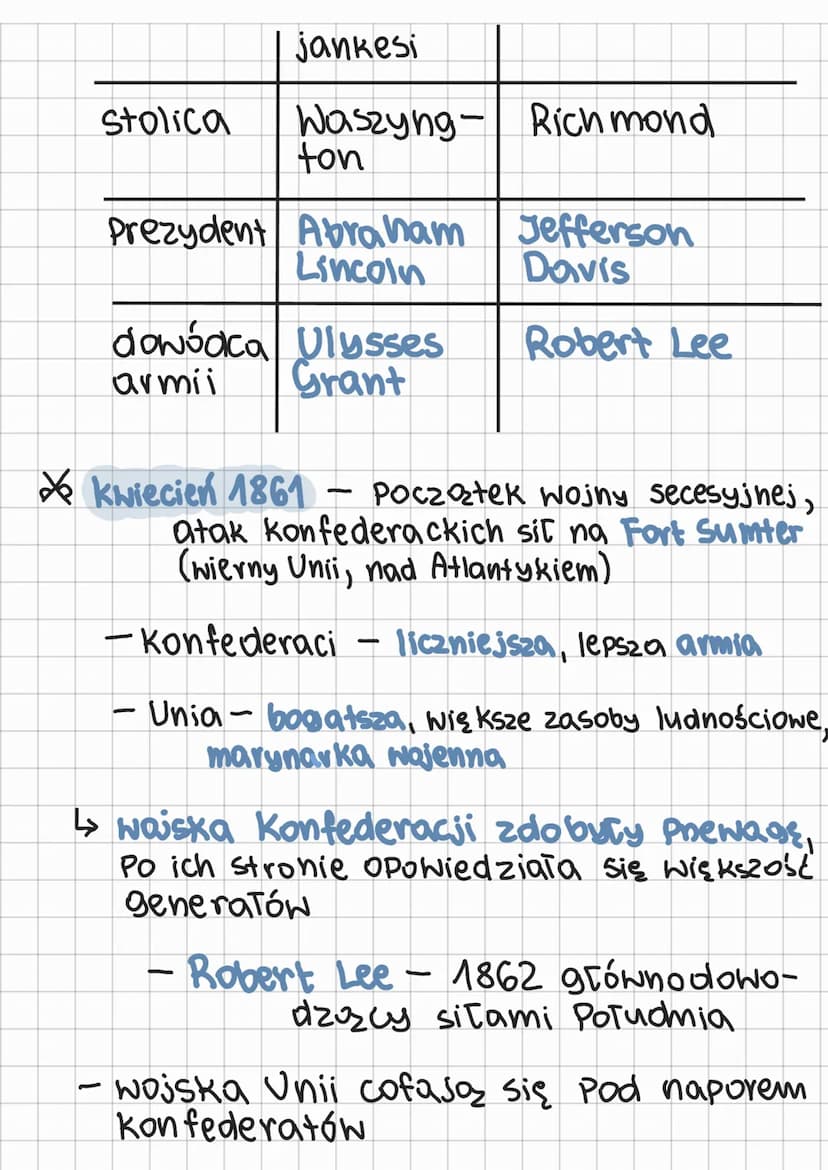 jankesi
stolica Waszyng- Richmond
ton
prezydent Abraham Jefferson
Lincoln Davis
dowódca Ulysses Robert Lee
armii Grant
kwiecień 1861 – początek wojny secesyjnej,
atak konfederackich sił na Fort Sumter
(wierny Unii, nad Atlantykiem)
– Konfederaci – liczniejsza, lepsza armia
– Unia – bogatsza, większe zasoby ludnościowe,
marynarka wojenna
↳ wojska Konfederacji zdobyły przewagę,
po ich stronie opowiedziała się większość
generałów
– Robert Lee – 1862 głównodowo-
dzący siłami Południa
– wojska Unii cofają się pod naporem
konfederatów